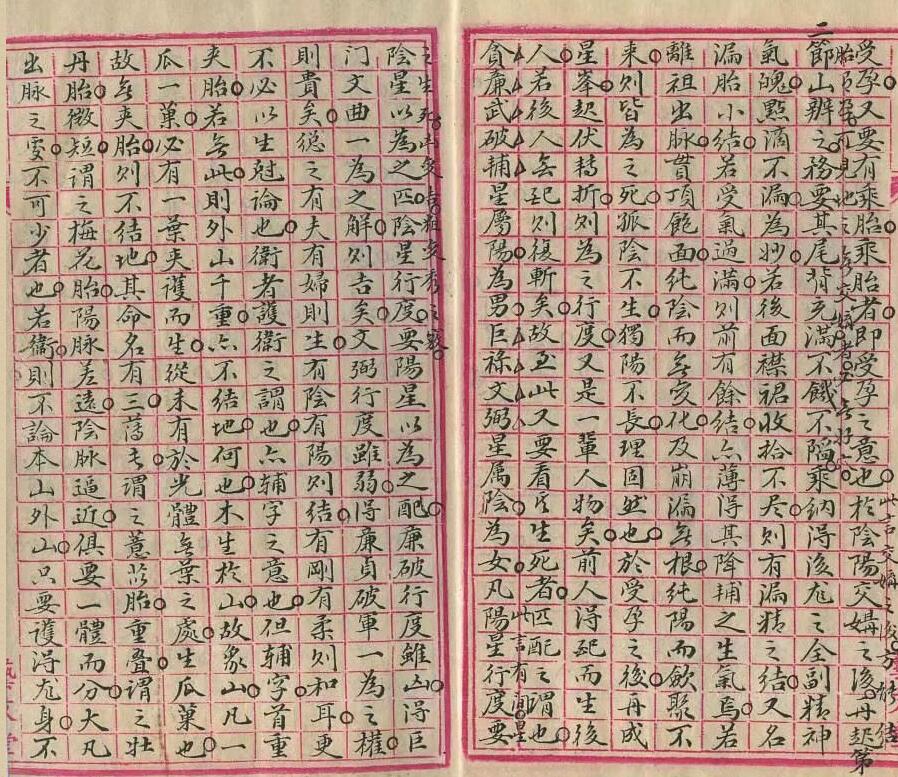 受孕又要有乘胎乘胎者即受孕之意也於陰陽交媾之後再起第
二節山辨之務要其尾背充滿不餓不陷乘納得後龙之全副精神
氣魄點滴不漏為妙若後面襟裙收拾不尽則有漏精之结又名
漏胎小结若受氣過滿则前有餘结亠薄得其降輔之生氣焉若
離祖出脉貫頂飽面純陰而無変化及崩漏無根純陽而飲聚不
来则皆為之死孤陰不生獨陽不長理固然也於受孕之後再成
星峯起伏轉折则為之行度又是一輩人物矣前人得起而生後
人若後人無起则復斬矣故至此又要看它生死者匹配之謂也
貪廉武破輔星屬陽為男巨祿文弼星属陰為女凡陽星行度要
陰星以為之匹陰星行度要陽星以為之配廉破行度雖凶得巨
门文曲一為之解则吉矣文弼行度雖弱得廉貞破軍一為之權
则貴矣總之有夫有婦則生有陰有陽则结有剛有柔则和耳更
不必以生尅論也衛者護衛之謂也亠輔字之意也但輔字首重
夹胎若無此則外山千重亠不结地何也木生於山故象山凡一
瓜一菓必有一葉夹護而生從未有於光體無葉之處生瓜菓也
故無夹胎则不结地其命名有三蕩者謂之薏苡胎重叠謂之壮
丹胎微短謂之梅花胎陽脉差遠陰脉逼近俱要一體而分大凡
出脉之雯不可少者也若衞則不論本山外山只要護得龙身不